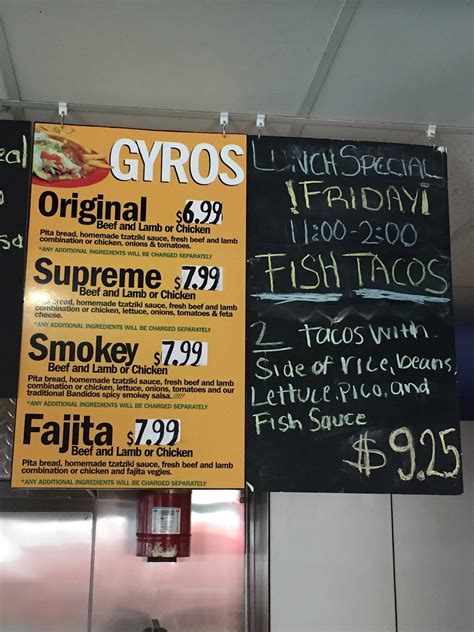 GYROS
Original $6.99
Beef and Lamb or Chicken
Pita bread, homemade tzatziki sauce, fresh beef and lamb
combination or chicken, onions & tomatoes.
*ANY ADDITIONAL INGREDIENTS WILL BE CHARGED SEPARATELY
Supreme $7.99
Beef and Lamb or Chicken
Pita bread, homemade tzatziki sauce, fresh beef and lamb
combination or chicken, lettuce, onions, tomatoes & feta
cheese.
*ANY ADDITIONAL INGREDIENTS WILL BE CHARGED SEPARATELY
Smokey $7.99
Beef and Lamb or Chicken
Pita bread, homemade tzatziki sauce, fresh beef and lamb
combination or chicken, lettuce, onions, tomatoes and our
traditional Bandidos spicy smokey salsa.
*ANY ADDITIONAL INGREDIENTS WILL BE CHARGED SEPARATELY
Fajita $7.99
Beef and Lamb or Chicken
Pita bread, homemade tzatziki sauce, fresh beef and lamb
combination or chicken and fajita vegies.
*ANY ADDITIONAL INGREDIENTS WILL BE CHARGED SEPARATELY
LUNCH SPECIAL
!FRIDAY!
11:00-2:00
FISH TACOS
2 tacos with
Side of rice, beans,
Lettuce, Pico, and
Fish Sauce
$9.25